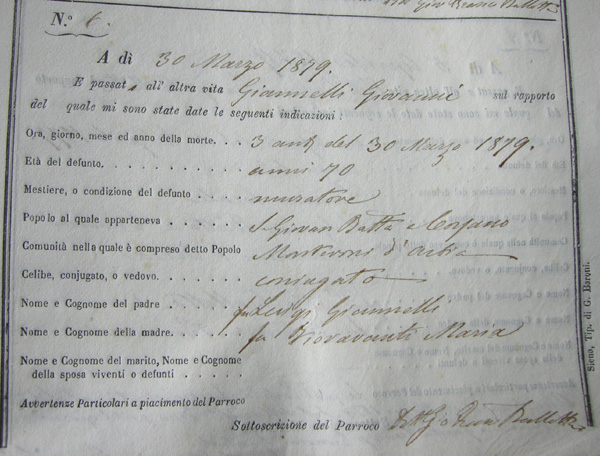 N.° 6.
A dì 30 Marzo 1879.
E passat all' altra vita Giannelli Giovanni sul rapporto
del quale mi sono state date le seguenti indicazioni:
Ora, giorno, mese ed anno della morte. . . 3 ant del 30 Marzo 1879.
Età del defunto. . . . . . . . anni 70
Mestiere, o condizione del defunto . . muratore
Popolo al quale apparteneva . . . . . S. Giovan Batta a Corsano
Comunità nella quale è compreso detto Popolo Monteroni d'Arbia
Celibe, conjugato, o vedovo. . . . . . . coniugato
Nome e Cognome del padre . . . . . fu Luigi Giannelli
Nome e Cognome della madre. . . . . . fu Maria
Nome e Cognome del marito, Nome e Cognome
della sposa viventi o defunti . . . . .
Avvertenze Particolari a piacimento del Parroco
Sottoscrizione del Parroco
Siena, Tip. di G. Baroni.